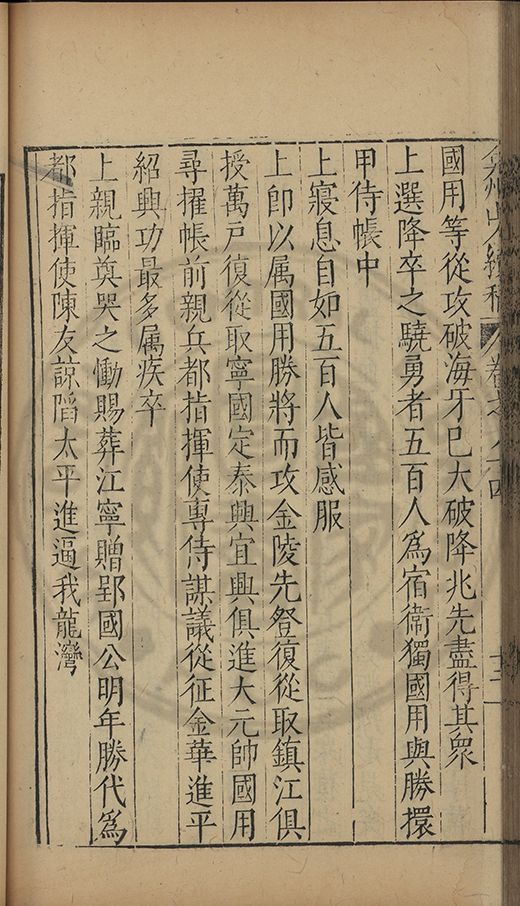 弇州山人續稿 卷之八十四 十三
國用等從攻破海牙已大破降兆先盡得其眾
上選降卒之驍勇者五百人為宿衛獨國用與勝擐
甲侍帳中
上寢息自如五百人皆感服
上即以属國用勝將而攻金陵先登復從取鎮江俱
授萬戸復從取寧國定泰興宜興俱進大元帥國用
尋擢帳前親兵都指揮使專侍謀議從征金華進平
紹興功最多属疾卒
上親臨奠哭之慟賜葬江寧贈郢國公明年勝代為
都指揮使陳友諒䧟太平進逼我龍灣